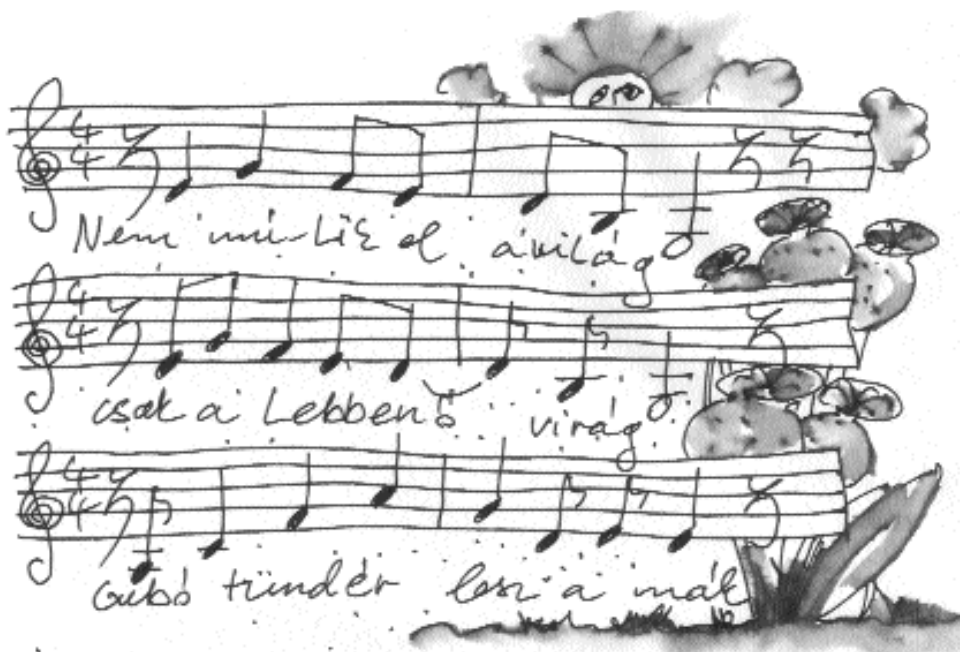 4 4
Nem mú-lik el a világ
4 4
csak a Lebbenő virág
4 4
Gubó tündér lesz a mák